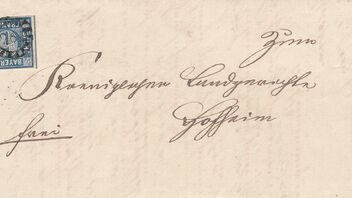 BAYERN
Zum
Koeniglichen Landgerichte
Hofheim
frei